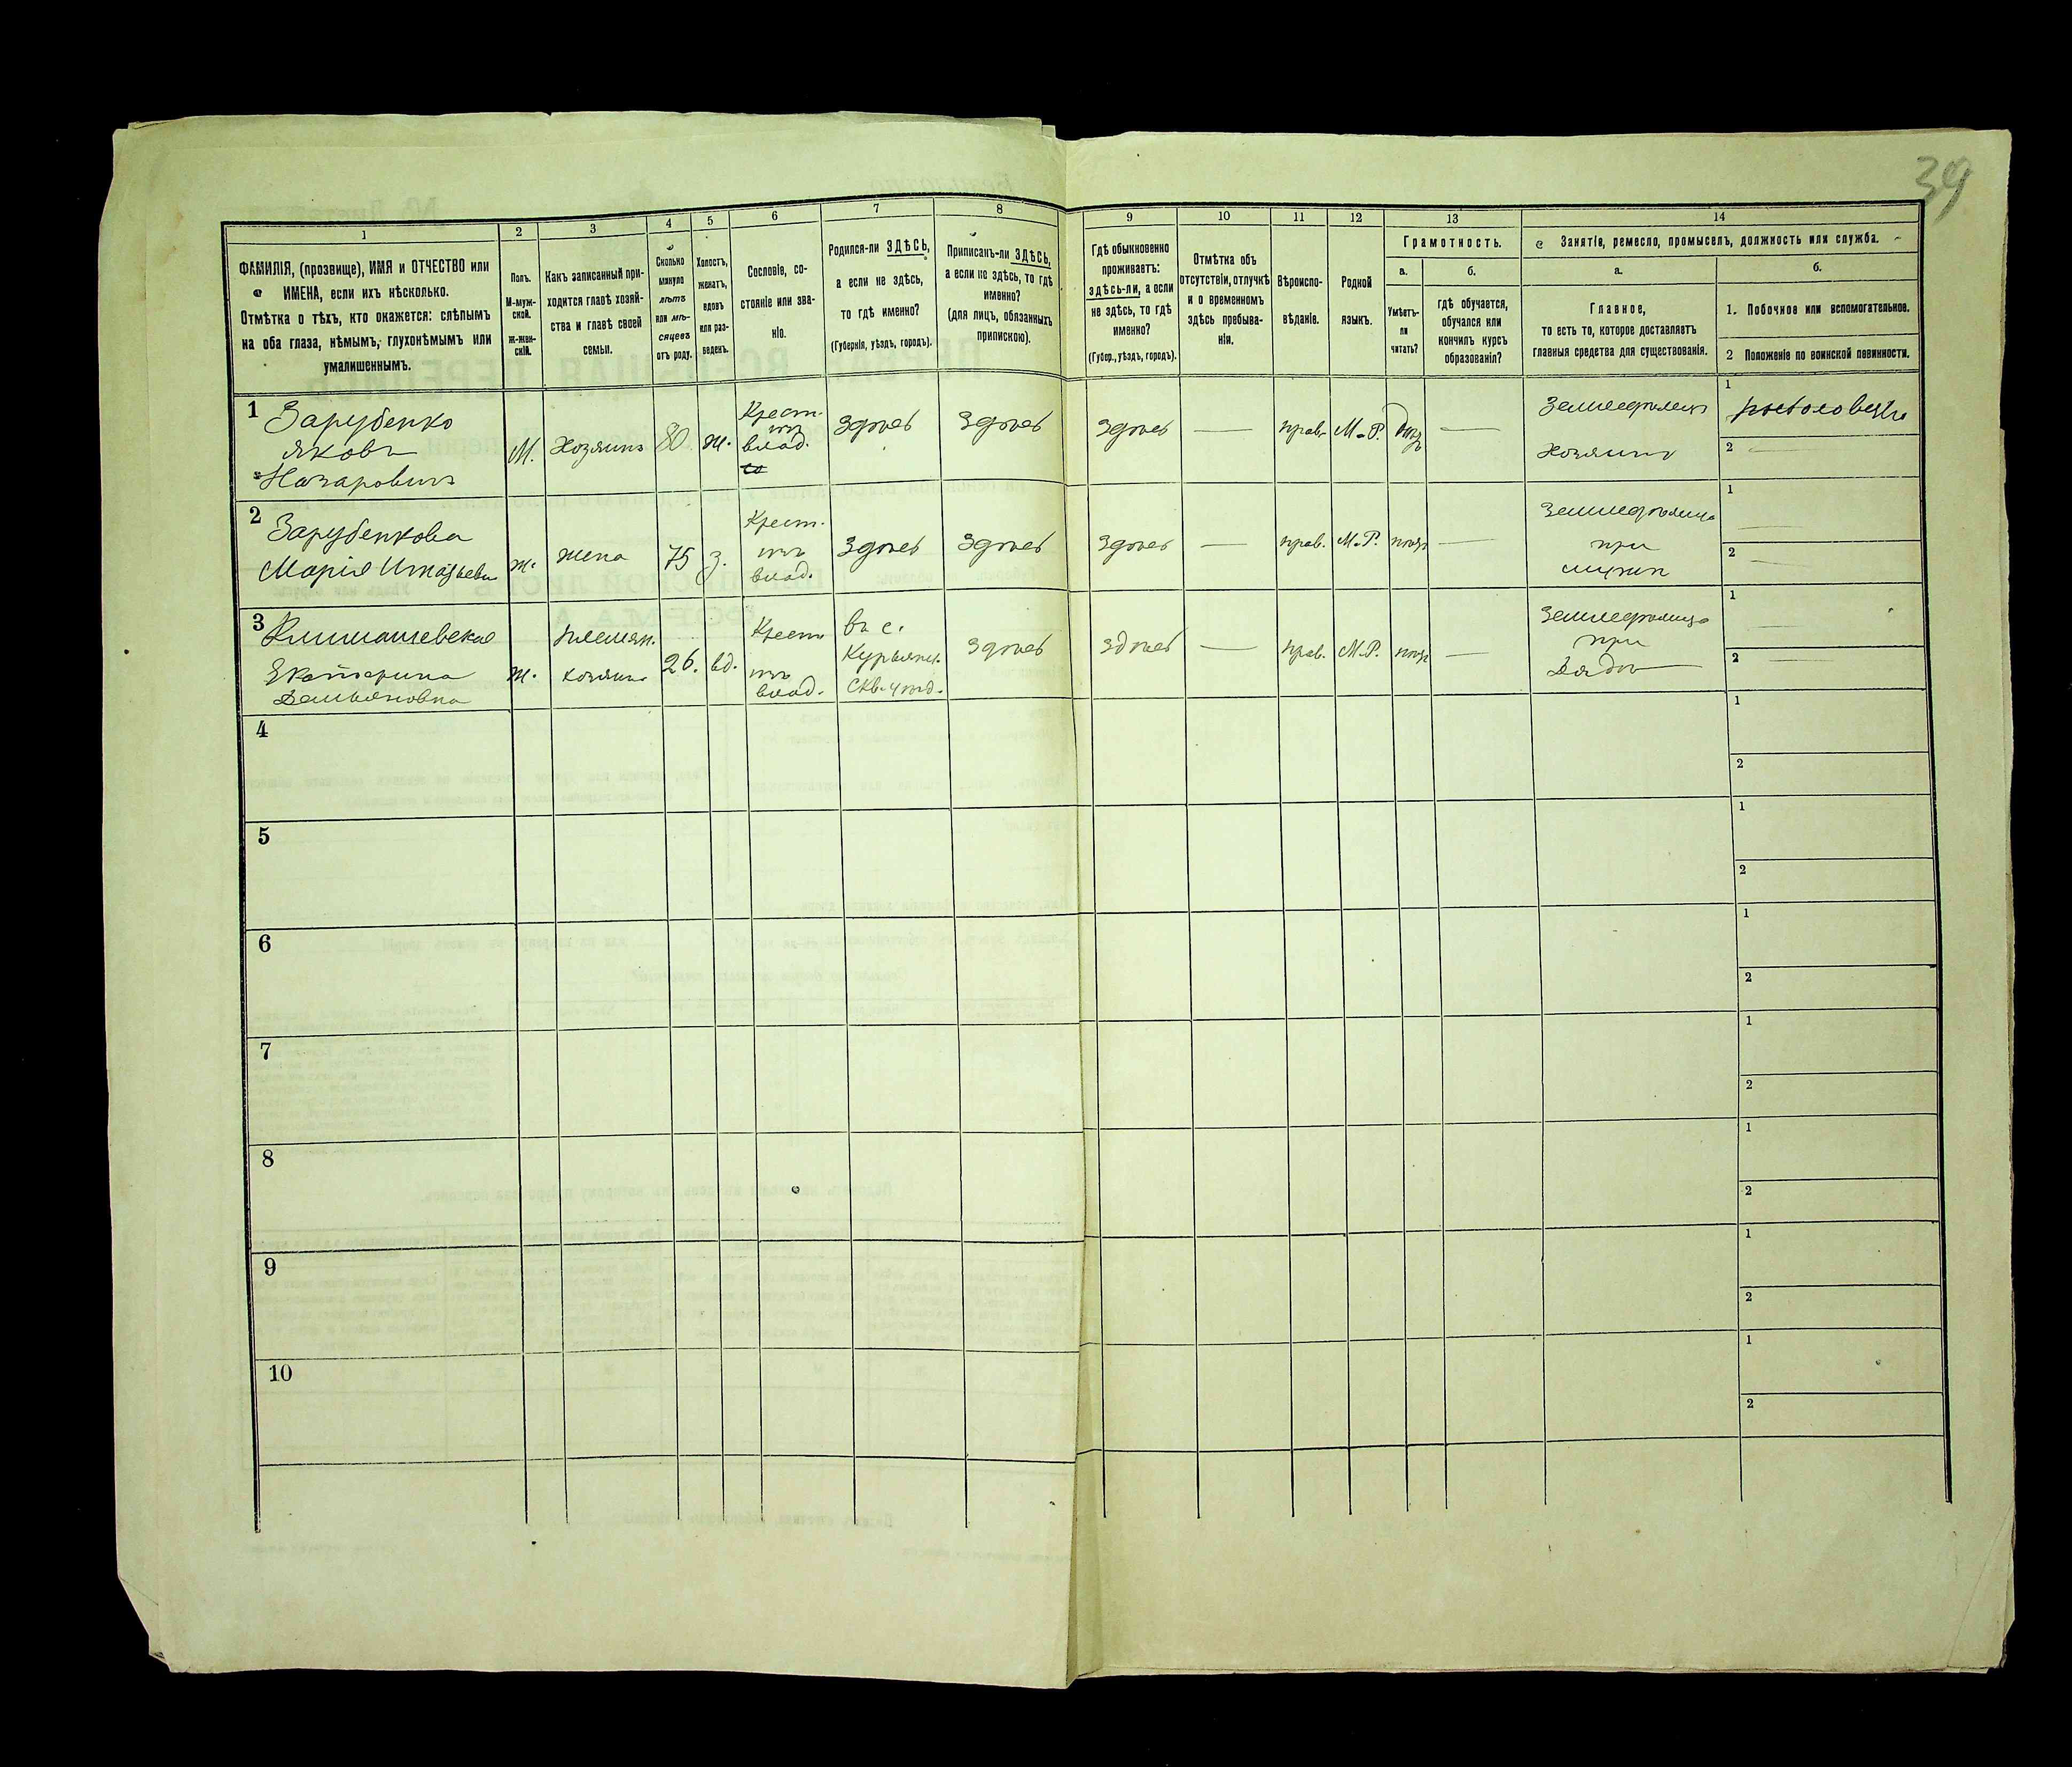 39
1
2
3
4
5
6
7
8
9
10
11
12
13
14
ФАМИЛІЯ, (прозвище), ИМЯ и ОТЧЕСТВО или
ИМЕНА, если ихъ нѣсколько.
Отмѣтка о тѣхъ, кто окажется: слѣпымъ
на оба глаза, нѣмымъ, глухонѣмымъ или
умалишеннымъ.
Полъ.
М-муж-
ской.
Ж-жен-
скій.
Какъ записанный при-
ходится главѣ хозяй-
ства и главѣ своей
семьи.
Сколько
минуло
лѣтъ
или мѣ-
сяцевъ
отъ роду.
Холостъ,
женатъ,
вдовъ
или раз-
веденъ.
Сословіе, со-
стояніе или зва-
ніе.
Родился-ли ЗДѢСЬ,
а если не здѣсь,
то гдѣ именно?
(Губернія, уѣздъ, городъ).
Приписанъ-ли ЗДѢСЬ,
а если не здѣсь, то гдѣ
именно?
(для лицъ, обязанныхъ
припискою).
Гдѣ обыкновенно
проживаетъ:
здѣсь-ли, а если
не здѣсь, то гдѣ
именно?
(Губер., уѣздъ, городъ).
Отмѣтка объ
отсутствіи, отлучкѣ
и о временномъ
здѣсь пребыва-
ніи.
Вѣроиспо-
вѣданіе.
Родной
языкъ.
Грамотность.
а.
б.
Умѣетъ-
ли
читать?
гдѣ обучается,
обучался или
кончилъ курсъ
образованія?
Занятіе, ремесло, промыселъ, должность или служба.
а.
б.
Главное,
то есть то, которое доставляетъ
главныя средства для существованія.
1. Побочное или вспомогательное.
2 Положеніе по воинской повинности.
1 Зарубенко
Яковъ
Назаровичъ
М. Хозяинъ 80 ж.
Крест.
изъ
влад.
здѣсь здѣсь здѣсь — прав. М.-Р. —
Земледѣлецъ
Хозяинъ
1
2 —
2 Зарубенкова
Марія
ж. жена 75 з.
Крест.
изъ
влад.
здѣсь здѣсь здѣсь — прав. М.-Р. —
Земледѣлица
при
мужѣ
1 —
2 —
3
Екатерина
Демьяновна
ж.
племян.
хозяина
26. вд.
Крест.
изъ
влад.
въ с.
Скв. уѣзд.
здѣсь здѣсь — прав. М.-Р. —
Земледѣлица
при
дядѣ
1 —
2 —
4
1
2
5
1
2
6
1
2
7
1
2
8
1
2
9
1
2
10
1
2